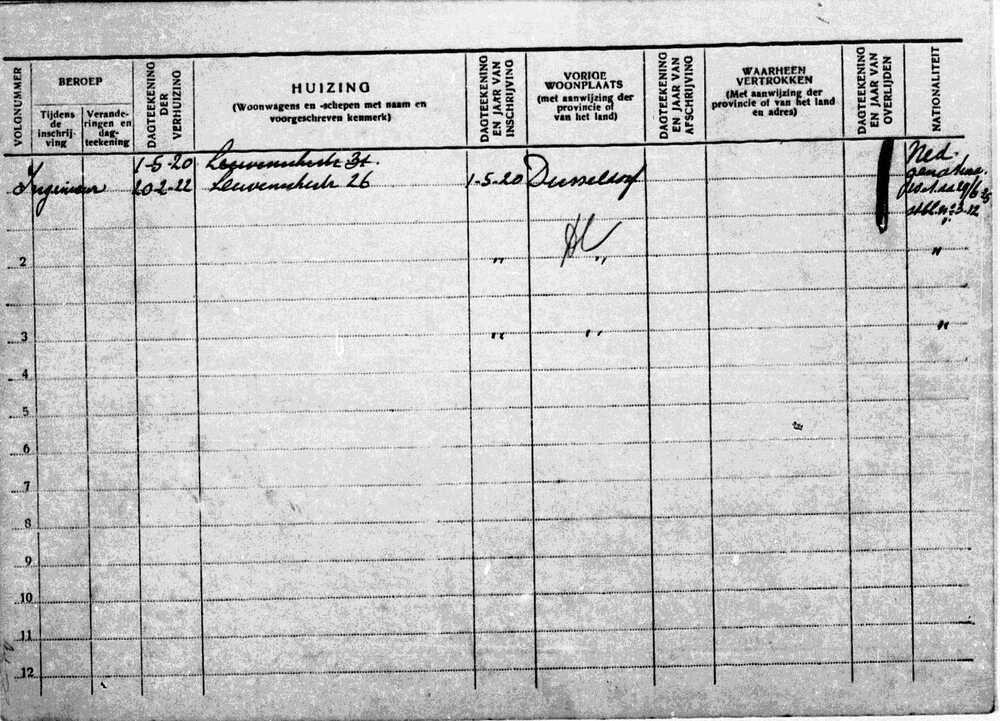 VOLGNUMMER
BEROEP
Tijdens de inschrij- ving
Verande- ringen en dag- teekening
DAGTEEKENING DER VERHUIZING
HUIZING
(Woonwagens en -schepen met naam en
voorgeschreven kenmerk)
DAGTEEKENING EN JAAR VAN INSCHRIJVING
VORIGE
WOONPLAATS
(met aanwijzing der
provincie of
van het land)
DAGTEEKENING EN JAAR VAN AFSCHRIJVING
WAARHEEN
VERTROKKEN
(Met aanwijzing der
provincie of van het land
en adres)
DAGTEEKENING EN JAAR VAN OVERLIJDEN
NATIONALITEIT
1-5-20 Leuvenschestr 31. Ned.
Ingenieur 20-2-22 Leuvenschestr 26 1-5-20 Dusseldorf
2 " " "
3 " " "
4
5
6
7
8
9
10
11
12